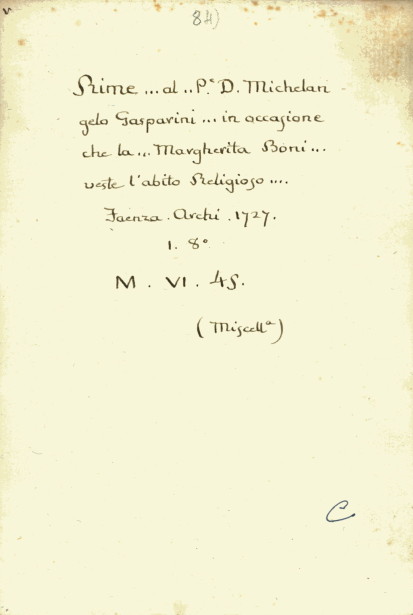 84)
Rime ... al .. P.e D. Michelan
gelo Gasparini ... in occasione
che la ... Margherita Boni ...
veste l'abito Religioso ....
Faenza . Archi . 1727.
1. 8°
M . VI . 45.
(Miscell.a)
C